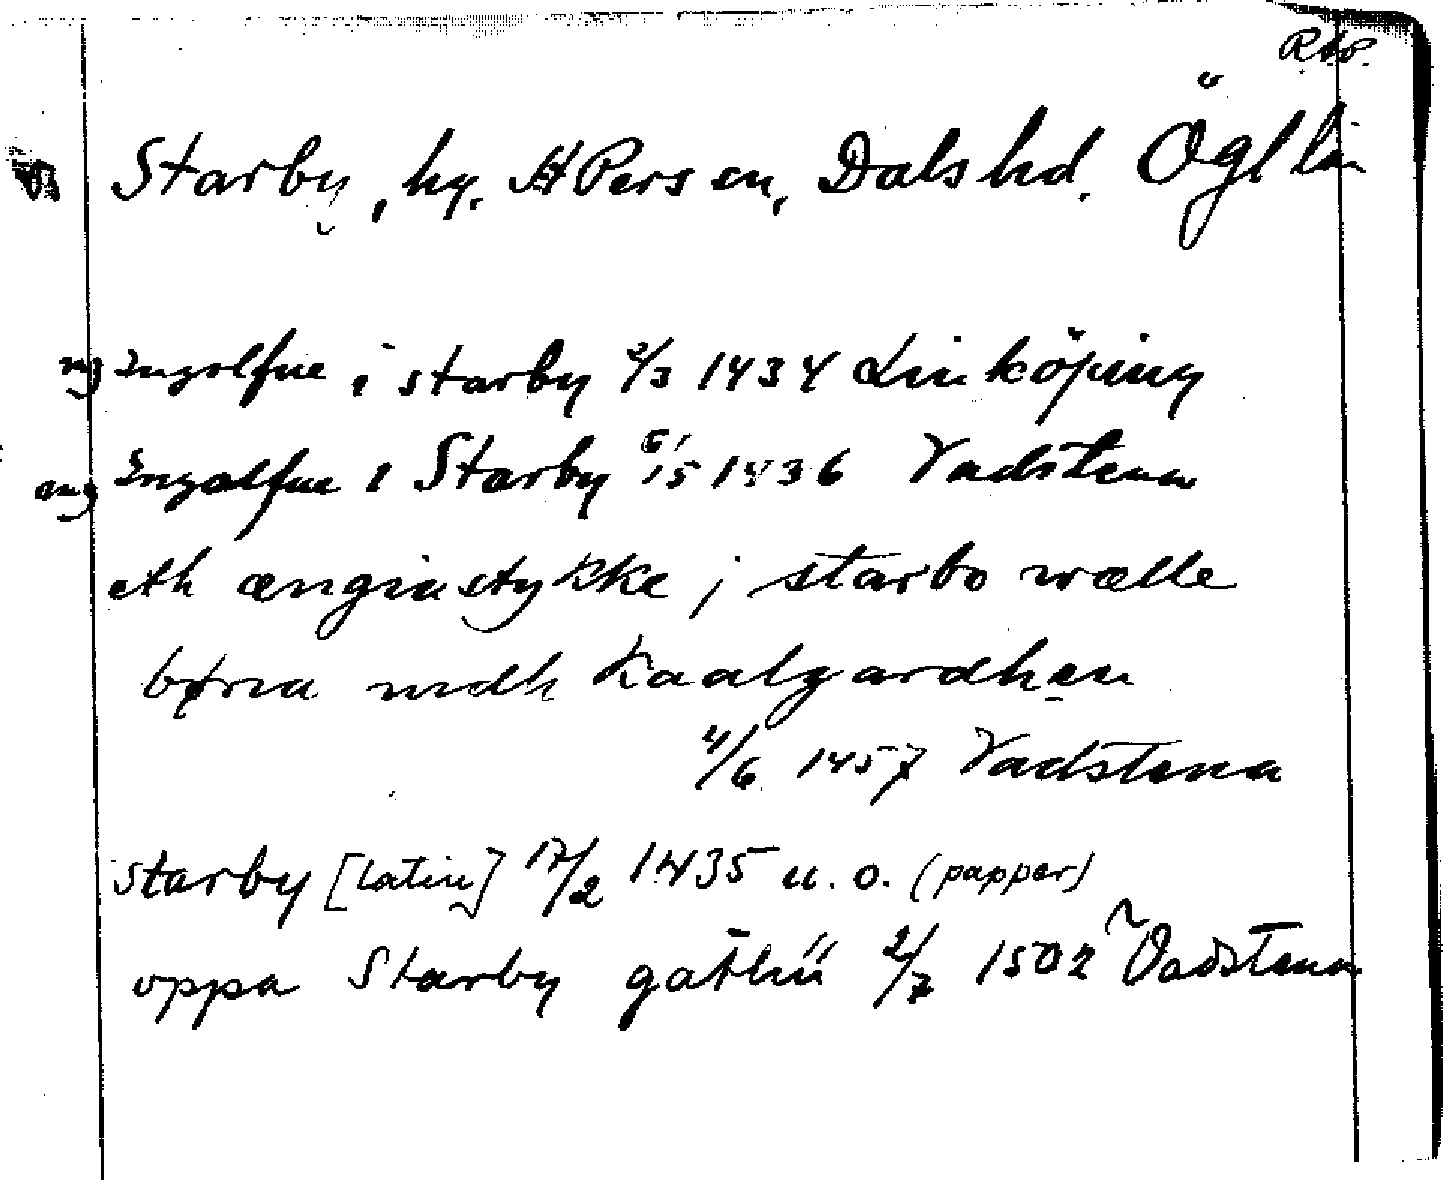 RAP.
Starby, hg. H Pers sn, Dals hd. Ögl län
mg Ingolfue i starby 2/3 1434 Linköping
mg Ingolfue i Starby 6/15 1436 Vadstena
eth ængiastykke j starbo wælle
børia mdh kaalgardhen
4/6 1457 Vadstena
starby [latin] 17/2 1435 u. o. (papper)
oppa Starby gathu 2/7 1502 Vadstena